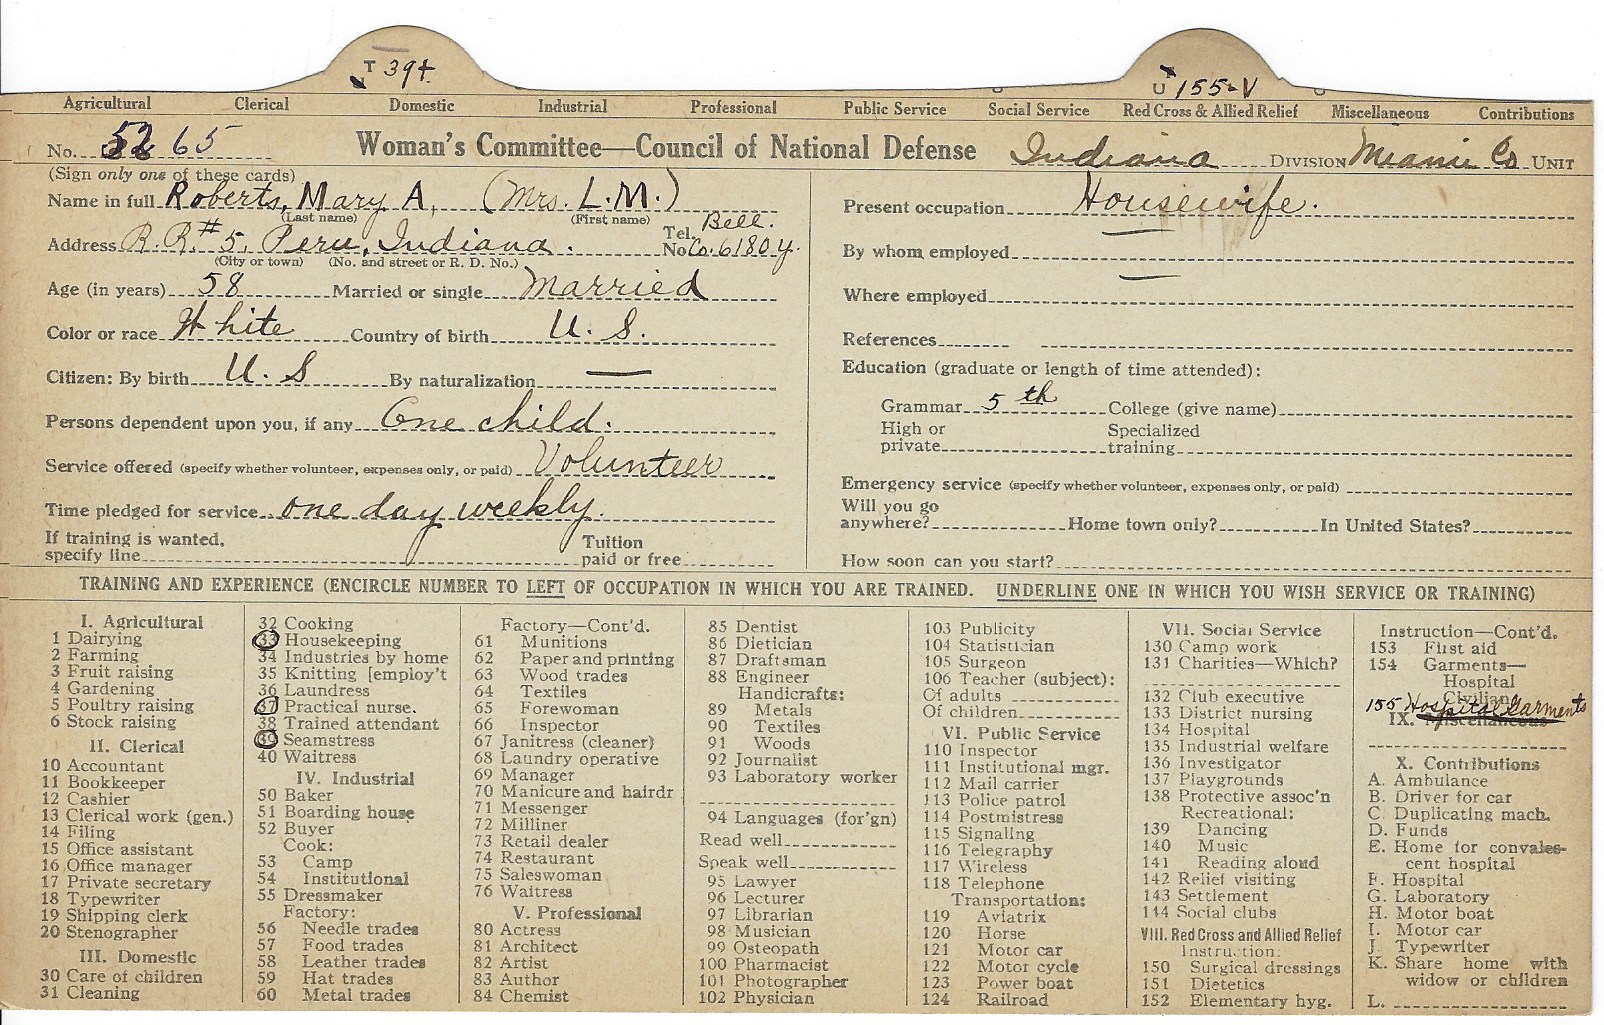 T 39t.
U 155-V
Agricultural Clerical Domestic Industrial Professional Public Service Social Service Red Cross & Allied Relief Miscellaneous Contributions
No. 5265 Woman's Committee—Council of National Defense Indiana DIVISION Miami Co. UNIT
(Sign only one of these cards)
Name in full Roberts, Mary A. (Mrs. L.M.)
(Last name) (First name)
Address R.R.#5, Peru, Indiana. Tel. No. Bell. Co. 6180y.
(City or town) (No. and street or R. D. No.)
Age (in years) 58 Married or single Married
Color or race White Country of birth U. S.
Citizen: By birth U. S By naturalization —
Persons dependent upon you, if any One child.
Service offered (specify whether volunteer, expenses only, or paid) Volunteer
Time pledged for service one day weekly.
If training is wanted, specify line Tuition paid or free
Present occupation Housewife.
By whom employed —
Where employed —
References
Education (graduate or length of time attended):
Grammar 5th College (give name)
High or private Specialized training
Emergency service (specify whether volunteer, expenses only, or paid)
Will you go anywhere? Home town only? In United States?
How soon can you start?
TRAINING AND EXPERIENCE (ENCIRCLE NUMBER TO LEFT OF OCCUPATION IN WHICH YOU ARE TRAINED. UNDERLINE ONE IN WHICH YOU WISH SERVICE OR TRAINING)
I. Agricultural
1 Dairying
2 Farming
3 Fruit raising
4 Gardening
5 Poultry raising
6 Stock raising
II. Clerical
10 Accountant
11 Bookkeeper
12 Cashier
13 Clerical work (gen.)
14 Filing
15 Office assistant
16 Office manager
17 Private secretary
18 Typewriter
19 Shipping clerk
20 Stenographer
III. Domestic
30 Care of children
31 Cleaning
32 Cooking
33 Housekeeping
34 Industries by home
35 Knitting [employ't
36 Laundress
37 Practical nurse.
38 Trained attendant
39 Seamstress
40 Waitress
IV. Industrial
50 Baker
51 Boarding house
52 Buyer
Cook:
53 Camp
54 Institutional
55 Dressmaker
Factory:
56 Needle trades
57 Food trades
58 Leather trades
59 Hat trades
60 Metal trades
Factory—Cont'd.
61 Munitions
62 Paper and printing
63 Wood trades
64 Textiles
65 Forewoman
66 Inspector
67 Janitress (cleaner)
68 Laundry operative
69 Manager
70 Manicure and hairdr
71 Messenger
72 Milliner
73 Retail dealer
74 Restaurant
75 Saleswoman
76 Waitress
V. Professional
80 Actress
81 Architect
82 Artist
83 Author
84 Chemist
85 Dentist
86 Dietician
87 Draftsman
88 Engineer
Handicrafts:
89 Metals
90 Textiles
91 Woods
92 Journalist
93 Laboratory worker
94 Languages (for'gn)
Read well
Speak well
95 Lawyer
96 Lecturer
97 Librarian
98 Musician
99 Osteopath
100 Pharmacist
101 Photographer
102 Physician
103 Publicity
104 Statistician
105 Surgeon
106 Teacher (subject):
Of adults
Of children
VI. Public Service
110 Inspector
111 Institutional mgr.
112 Mail carrier
113 Police patrol
114 Postmistress
115 Signaling
116 Telegraphy
117 Wireless
118 Telephone
Transportation:
119 Aviatrix
120 Horse
121 Motor car
122 Motor cycle
123 Power boat
124 Railroad
VII. Social Service
130 Camp work
131 Charities—Which?
132 Club executive
133 District nursing
134 Hospital
135 Industrial welfare
136 Investigator
137 Playgrounds
138 Protective assoc'n
Recreational:
139 Dancing
140 Music
141 Reading aloud
142 Relief visiting
143 Settlement
144 Social clubs
VIII. Red Cross and Allied Relief
Instruction:
150 Surgical dressings
151 Dietetics
152 Elementary hyg.
Instruction—Cont'd.
153 First aid
154 Garments—
Hospital
Civilian
155 Hospital Garments
IX. Miscellaneous
X. Contributions
A. Ambulance
B. Driver for car
C. Duplicating mach.
D. Funds
E. Home for convales-
cent hospital
F. Hospital
G. Laboratory
H. Motor boat
I. Motor car
J. Typewriter
K. Share home with
widow or children
L.